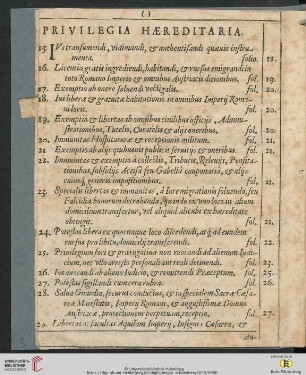 ( )
PRIVILEGIA HÆREDITARIA.
15. IVs transumendi, vidimandi, & authentisandi quævis instru-
menta. folio. 19.
16. Licentia gratis ingrediendi, habitandi, & rursus emigrandi in
toto Romano Imperio & omnibus Austriacis ditionibus. fol. 19.
17. Exemptio ab onere soluendi vectigalis. fol. 20.
18. Jus liberæ & gratuitæ habitationis in omnibus Imperij Roma-
ni locis. fol. 20.
19. Exemptio & libertas ab omnibus ciuilibus officijs, Admini-
strationibus, Tutelis, Curatelis & alijs oneribus. fol. 20.
20. Immunitas Hospitaturæ & receptionis militum. fol. 21.
21. Exemptio ab alijs quibusuis publicis seruitijs & oneribus. fol. 21.
22. Immunitas & exemptio à collectis, Tributis, Releuijs, Pensita-
tionibus, subsidijs Accisis seu Gabellâ cauponariâ, & alijs
cuiusq; generis impositionibus. fol. 21.
23. Specialis libertas & immunitas, à iure emigrationis soluendo, seu
Falcidia bonorum detrahenda, quando ex vno loco in alium
domicilium transfertur, vel aliquid alicubi ex hæreditate
obtingit. fol. 21.
24. Potestas libera ex quocunque loco discedendi, atq; ad eundem
rursus pro libitu, domicilij transferendi. fol. 22.
25. Priuilegium fori & prærogatiua non euocandi ad alienum Iudi-
cium, nec vllo arresto personali aut reali detinendi. fol. 23.
26. Ius auocandi ab alieno Iudicio, & remittendi Præceptum. fol. 25.
27. Potestas sigillandi cum cera rubra. fol. 26.
28. Salua Guardia, securus conductus, & in specialem Sacræ Cæsa-
reæ Maiestatis, Imperij Romani, & augustissimæ Domus
Austriacæ, protectionem perpetuam, receptio. fol. 27.
29. Libertas & facultas Aquilam Imperij, Insignia Cæsarea, &
alia-
Universitätsbibliothek Heidelberg